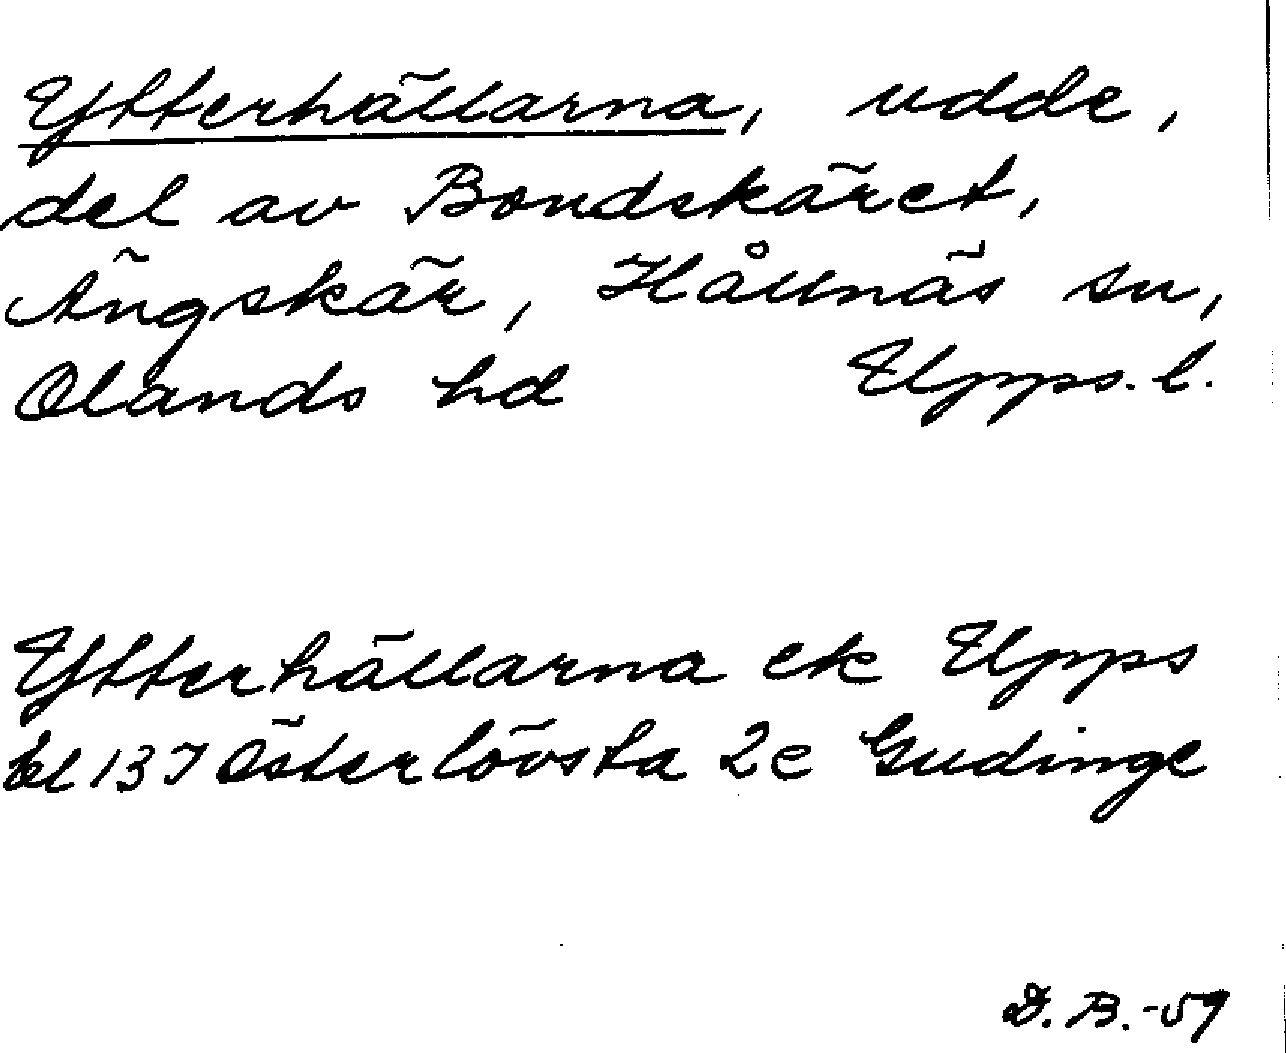 Ytterhällarna, udde,
del av Bondskäret,
Ängskär, Hållnäs sn,
Olands hd Upps. l.
Ytterhällarna ek Upps
bl 137 Österlövsta 2e Gudinge
D. B. -59